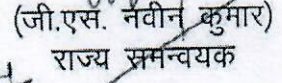 (जी.एस. नवीन कुमार)
राज्य समन्वयक